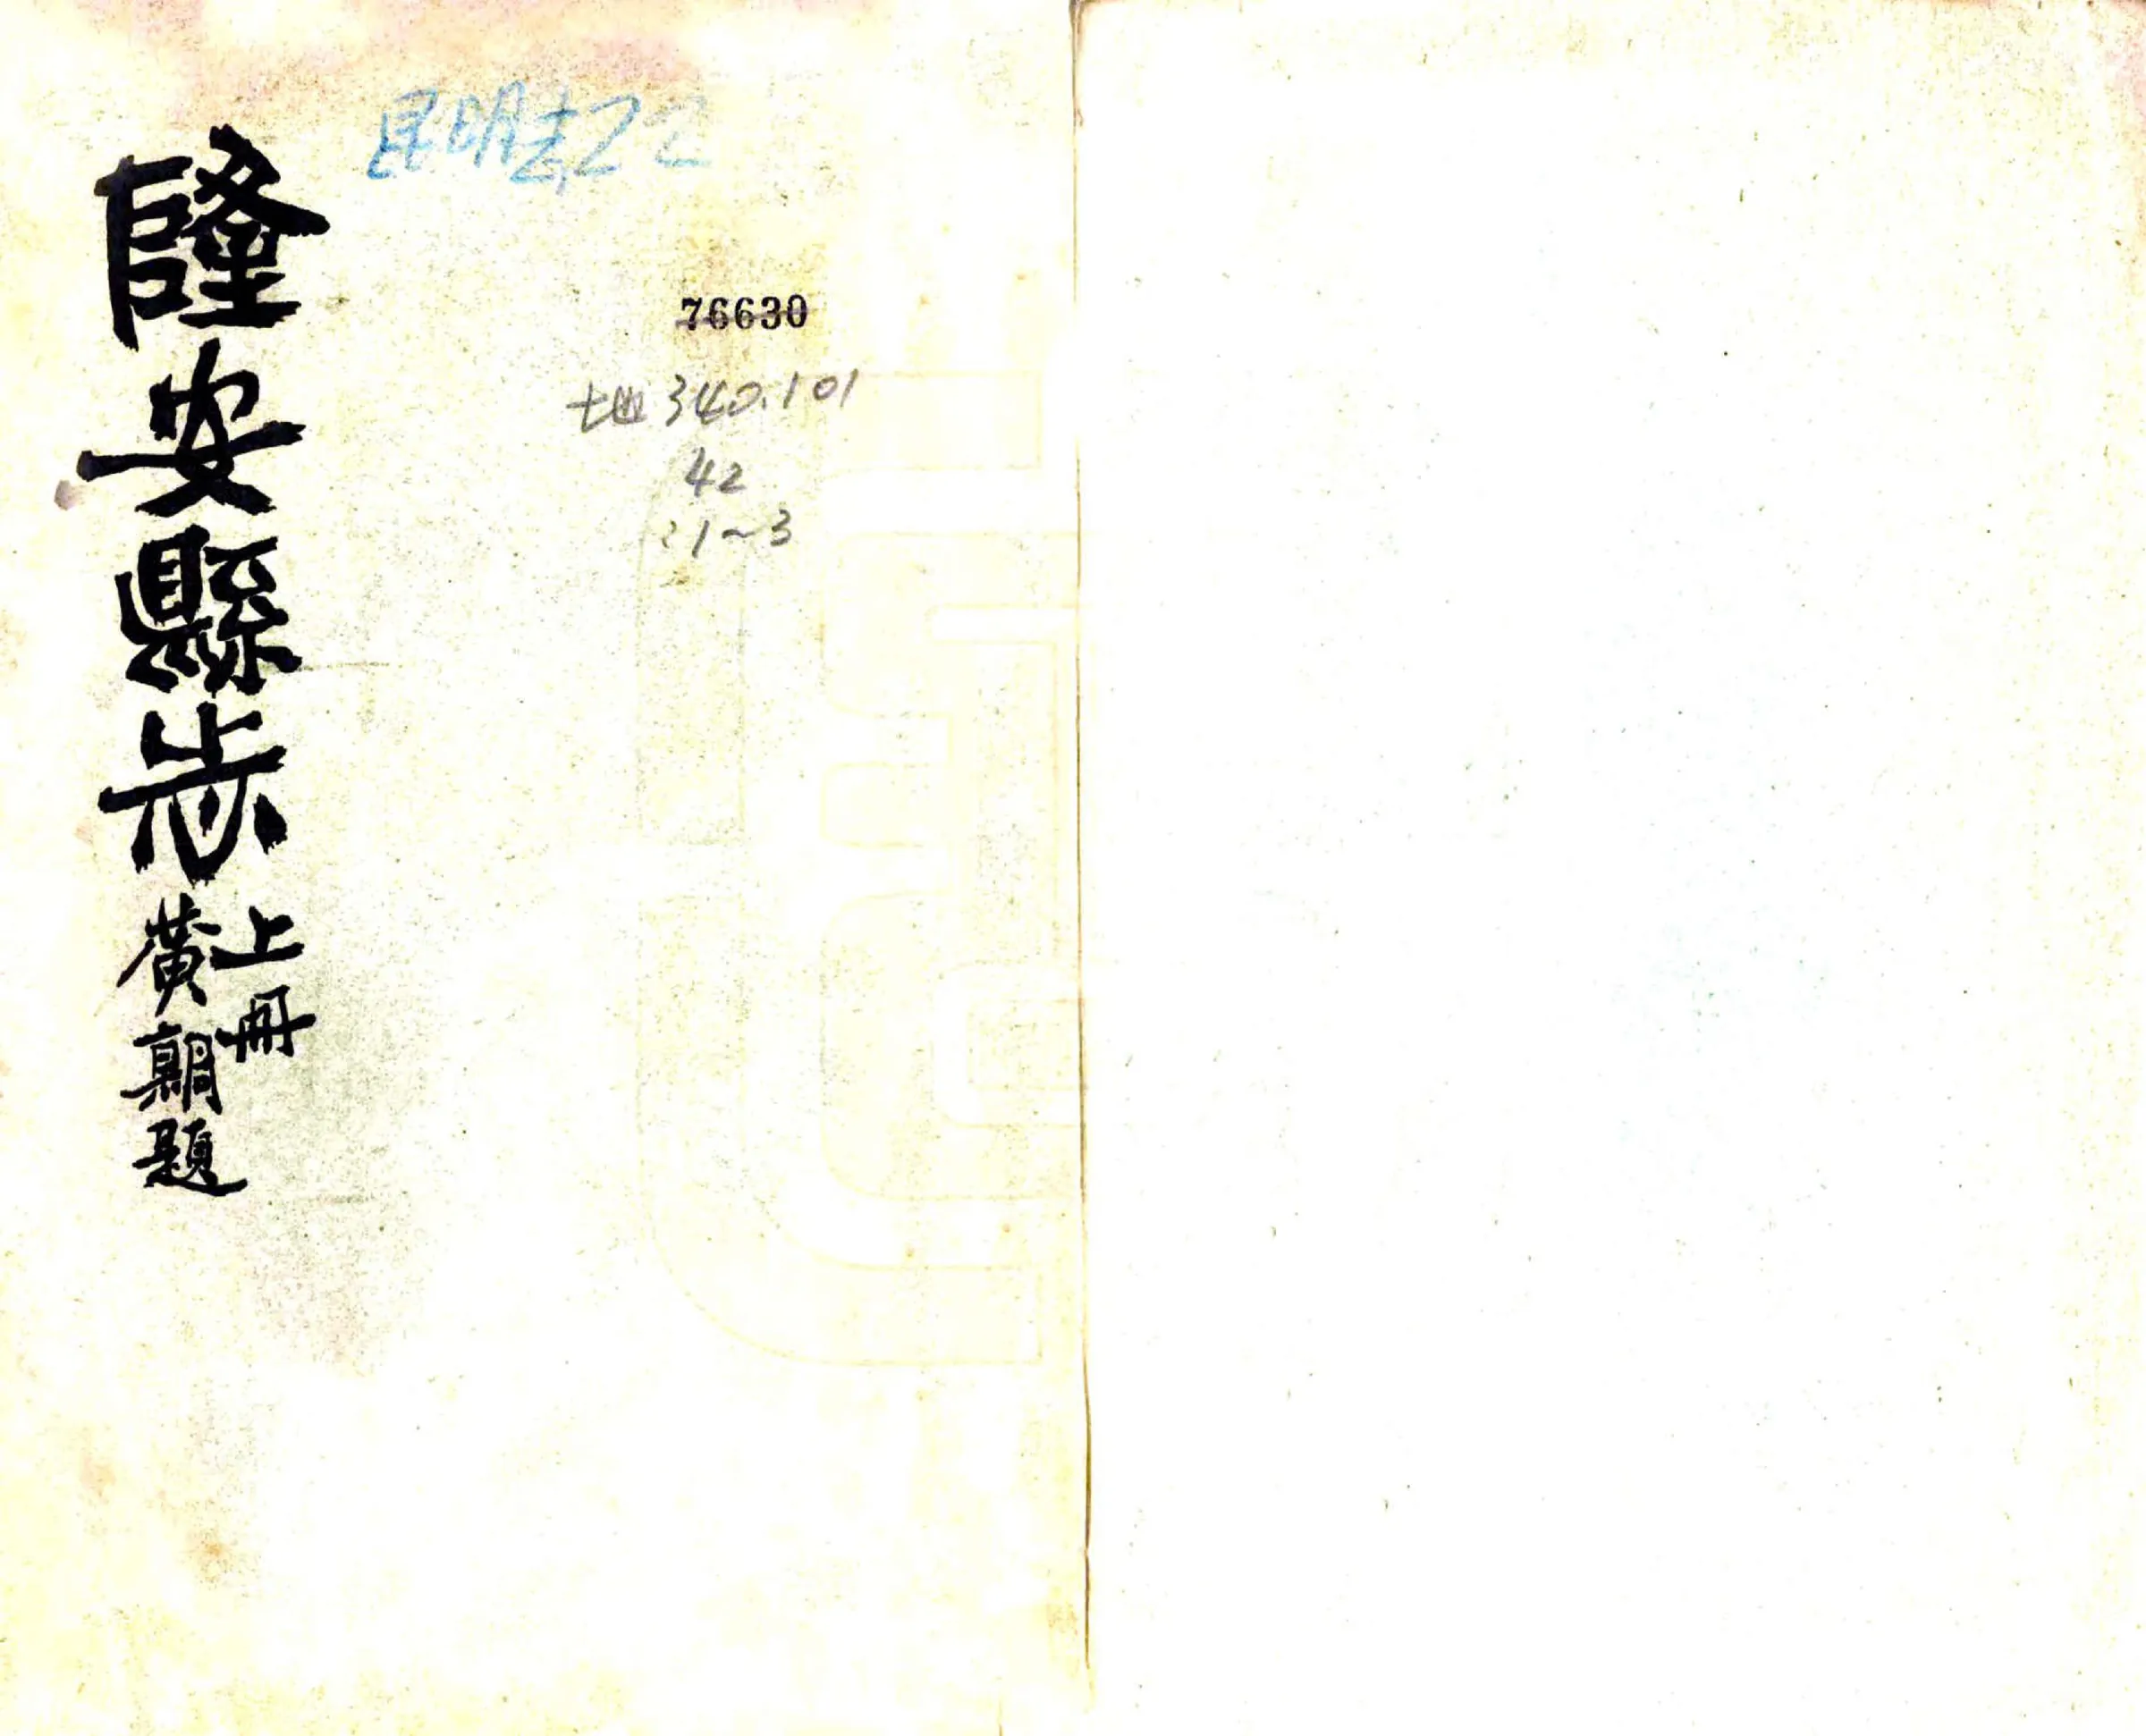 隆安縣志
上冊
黃朝題
76630
地340.101
42
:1~3